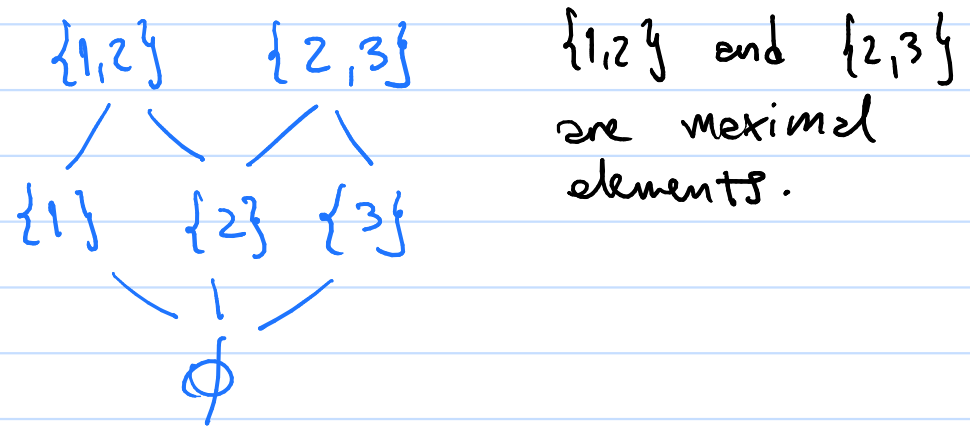 {1,2} {2,3}
{1} {2} {3}
∅
{1,2} and {2,3}
are maximal
elements.